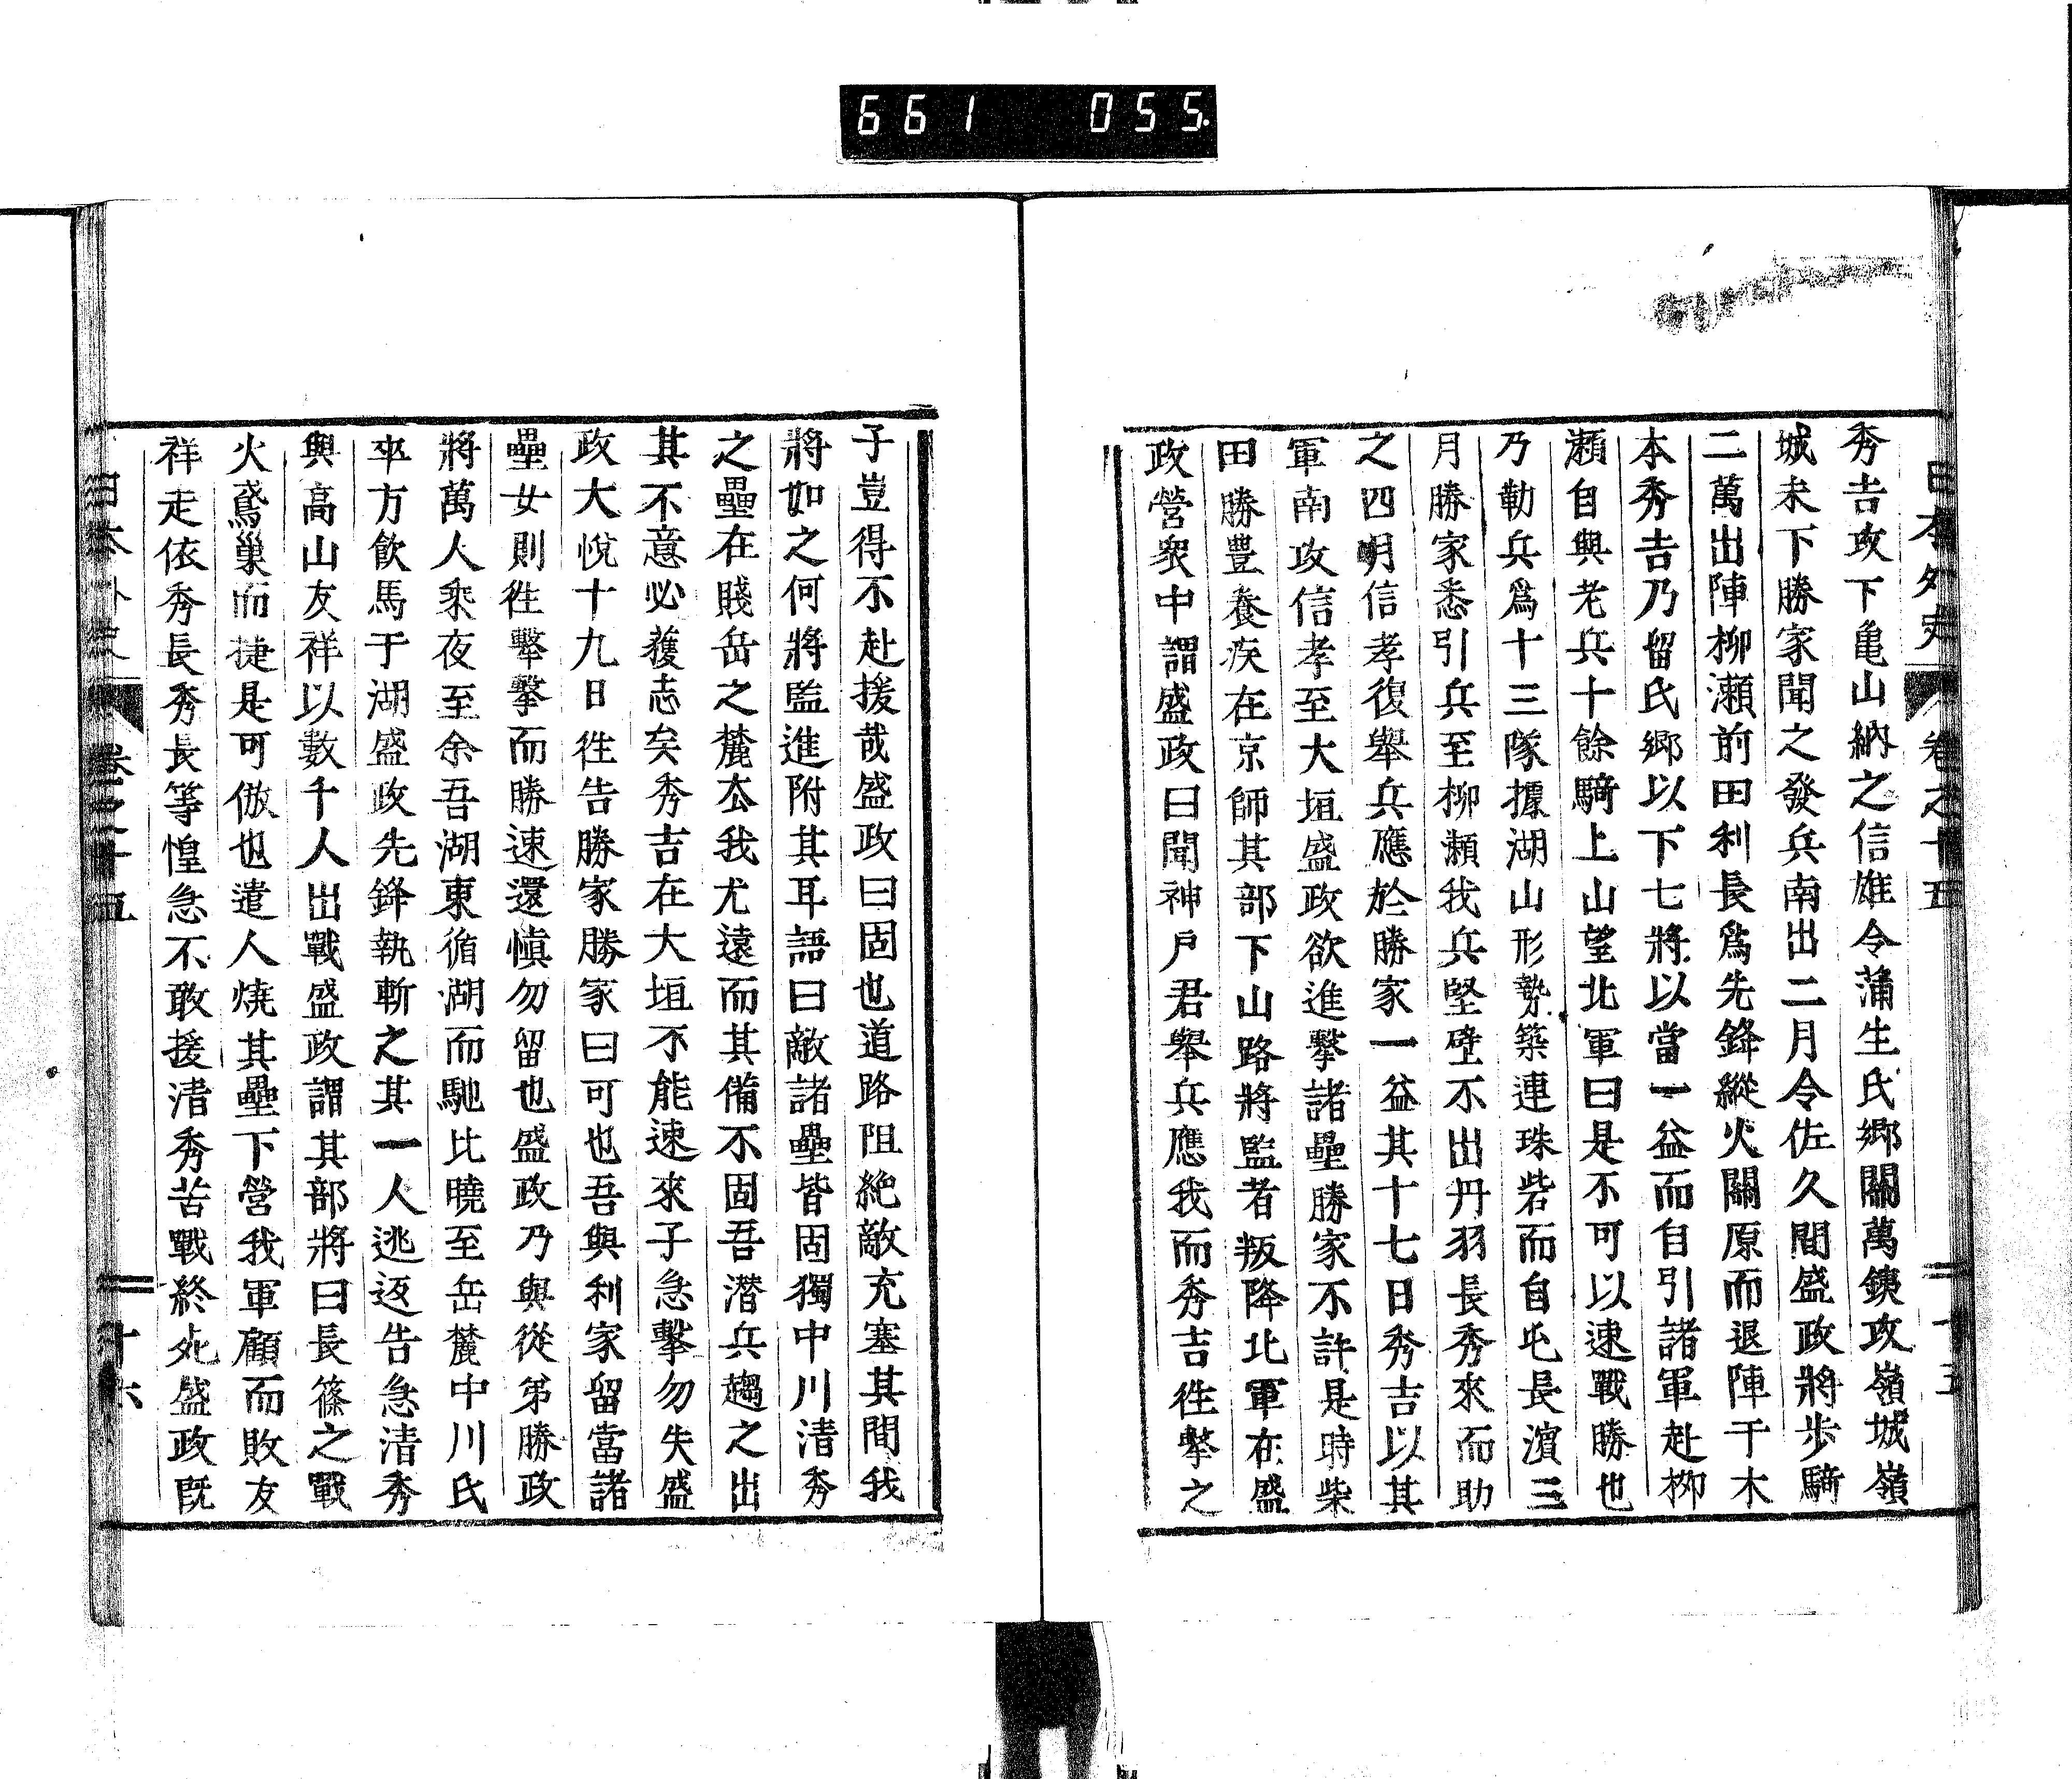 661 055.
日本外史 卷之十五 十五
秀吉攻下亀山納之信雄令蒲生氏郷關萬鉄攻嶺城嶺
城未下勝家聞之發兵南出二月令佐久間盛政將歩騎
二萬出陣柳瀬前田利長爲先鋒縱火關原而退陣于木
本秀吉乃留氏郷以下七將以當一益而自引諸軍赴柳
瀬自與老兵十餘騎上山望北軍曰是不可以速戰勝也
乃勒兵爲十三隊據湖山形勢築連珠砦而自屯長濵三
月勝家悉引兵至柳瀬我兵堅壁不出丹羽長秀來而助
之四月信孝復舉兵應於勝家一益其十七日秀吉以其
軍南攻信孝至大垣盛政欲進擊諸壘勝家不許是時柴
田勝豐養疾在京師其部下山路將監者叛降北軍在盛
政營衆中謂盛政曰聞神戸君舉兵應我而秀吉徃擊之
子豈得不赴援哉盛政曰固也道路阻絶敵充塞其間我
將如之何將監進附其耳語曰敵諸壘皆固獨中川清秀
之壘在賤岳之麓厺我尤遠而其備不固吾潜兵趨之出
其不意必獲志矣秀吉在大垣不能速來子急擊勿失盛
政大悅十九日徃告勝家勝家曰可也吾與利家留當諸
壘女則徃擊擊而勝速還愼勿留也盛政乃與從弟勝政
將萬人乘夜至余吾湖東循湖而馳比曉至岳麓中川氏
卒方飮馬于湖盛政先鋒執斬之其一人逃返告急清秀
與高山友祥以數千人出戰盛政謂其部將曰長篠之戰
火鳶巢而捷是可倣也遣人燒其壘下營我軍顧而敗友
祥走依秀長秀長等惶急不敢援清秀苦戰終死盛政既
日本外史 卷之十五 十六